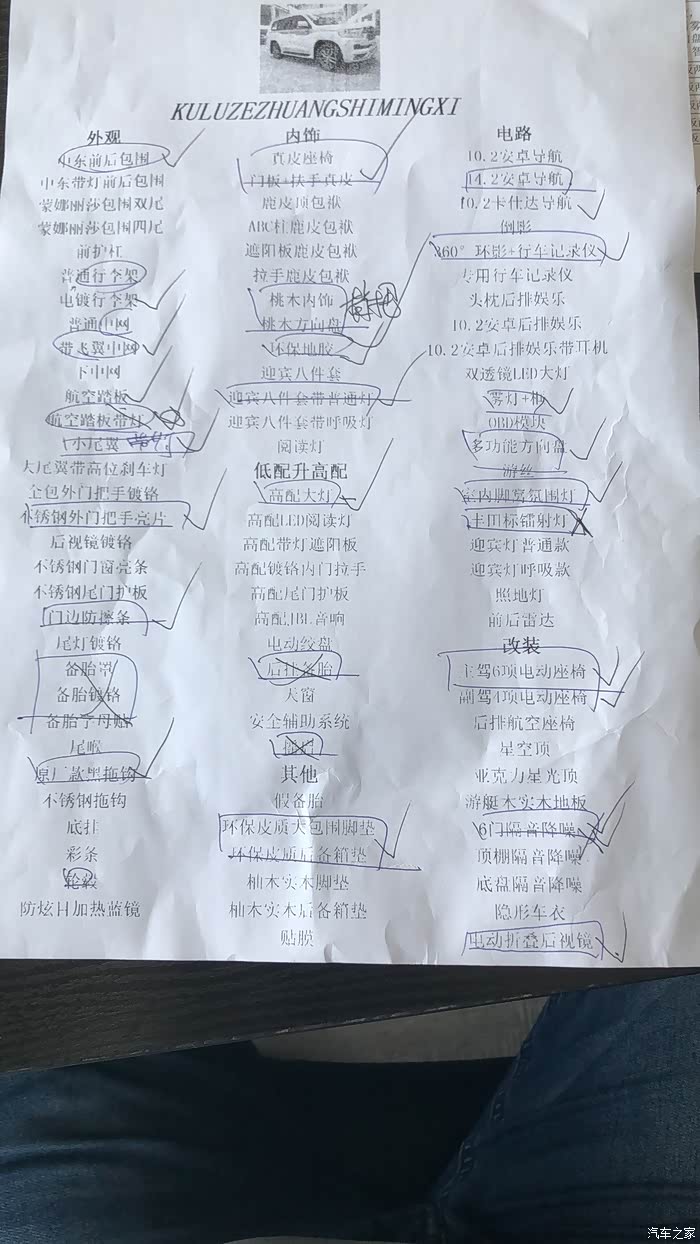 KULUZEZHUANGSHIMINGXI
外观
中东前后包围
中东带灯前后包围
蒙娜丽莎包围双尾
蒙娜丽莎包围四尾
前护杠
普通行李架
电镀行李架
普通中网
带飞翼中网
下中网
航空踏板
航空踏板带灯
小尾翼 带灯
大尾翼带高位刹车灯
全包外门把手镀铬
不锈钢外门把手亮片
后视镜镀铬
不锈钢门窗亮条
不锈钢尾门护板
门边防擦条
尾灯镀铬
备胎罩
备胎镀铬
备胎字母贴
尾喉
原厂款黑拖钩
不锈钢拖钩
底挂
彩条
轮毂
防炫目加热蓝镜
内饰
真皮座椅
门板+扶手真皮
鹿皮顶包袱
ABC柱鹿皮包袱
遮阳板鹿皮包袱
拉手鹿皮包袱
桃木内饰
桃木方向盘
环保地胶
迎宾八件套
迎宾八件套带普通灯
迎宾八件套带呼吸灯
阅读灯
低配升高配
高配大灯
高配LED阅读灯
高配带灯遮阳板
高配镀铬内门拉手
高配尾门护板
高配JBL音响
电动绞盘
后挂备胎
天窗
安全辅助系统
其他
假备胎
环保皮质大包围脚垫
环保皮质后备箱垫
柚木实木脚垫
柚木实木后备箱垫
贴膜
电路
10.2安卓导航
14.2安卓导航
10.2卡仕达导航
倒影
360°环影+行车记录仪
专用行车记录仪
头枕后排娱乐
10.2安卓后排娱乐
10.2安卓后排娱乐带耳机
双透镜LED大灯
雾灯+框
OBD模块
多功能方向盘
游丝
室内脚窝氛围灯
丰田标镭射灯
迎宾灯普通款
迎宾灯呼吸款
照地灯
前后雷达
改装
主驾6项电动座椅
副驾4项电动座椅
后排航空座椅
星空顶
亚克力星光顶
游艇木实木地板
6门隔音降噪
顶棚隔音降噪
底盘隔音降噪
隐形车衣
电动折叠后视镜
汽车之家